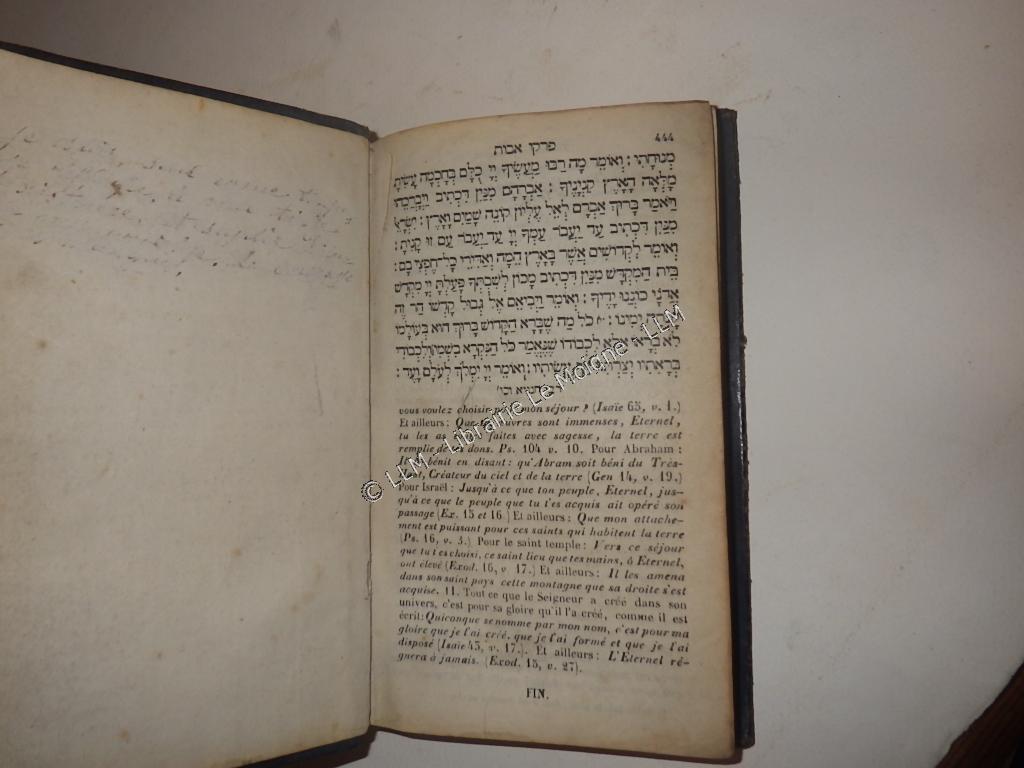 פרקי אבות
444
מְנוּחָתִי : וְאוֹמֵר מָה רַבּוּ מַעֲשֶׂיךָ יְיָ כֻּלָּם בְּחָכְמָה עָשִׂיתָ
מָלְאָה הָאָרֶץ קִנְיָנֶיךָ : אַבְרָהָם מִנַּיִן דִּכְתִיב וַיְבָרְכֵהוּ
וַיֹּאמַר בָּרוּךְ אַבְרָם לְאֵל עֶלְיוֹן קוֹנֵה שָׁמַיִם וָאָרֶץ : יִשְׂרָאֵל
מִנַּיִן דִּכְתִיב עַד יַעֲבֹר עַמְּךָ יְיָ עַד יַעֲבֹר עַם זוּ קָנִיתָ :
וְאוֹמֵר לִקְדוֹשִׁים אֲשֶׁר בָּאָרֶץ הֵמָּה וְאַדִּירֵי כָּל־חֶפְצִי בָם :
בֵּית הַמִּקְדָּשׁ מִנַּיִן דִּכְתִיב מָכוֹן לְשִׁבְתְּךָ פָּעַלְתָּ יְיָ מִקְּדָשׁ
אֲדֹנָי כּוֹנְנוּ יָדֶיךָ : וְאוֹמֵר וַיְבִיאֵם אֶל גְּבוּל קָדְשׁוֹ הַר זֶה
קָנְתָה יְמִינוֹ : י״א כֹּל מַה שֶּׁבָּרָא הַקָּדוֹשׁ בָּרוּךְ הוּא בְּעוֹלָמוֹ
לֹא בְרָאוֹ אֶלָּא לִכְבוֹדוֹ שֶׁנֶּאֱמַר כֹּל הַנִּקְרָא בִשְׁמִי וְלִכְבוֹדִי
בְּרָאתִיו יְצַרְתִּיו אַף עֲשִׂיתִיו : וְאוֹמֵר יְיָ יִמְלֹךְ לְעֹלָם וָעֶד :
חנניא וכו׳
vous voulez choisir pour mon séjour ? (Isaïe 65, v. 1.)
Et ailleurs : Que tes œuvres sont immenses, Eternel,
tu les as toutes faites avec sagesse, la terre est
remplie de tes dons. Ps. 104 v. 10. Pour Abraham :
Il le bénit en disant : qu'Abram soit béni du Très-
Haut, Créateur du ciel et de la terre (Gen 14, v. 19.)
Pour Israël : Jusqu'à ce que ton peuple, Eternel, jus-
qu'à ce que le peuple que tu t'es acquis ait opéré son
passage (Ex. 15 et 16.) Et ailleurs : Que mon attache-
ment est puissant pour ces saints qui habitent la terre
(Ps. 16, v. 3.) Pour le saint temple : Vers ce séjour
que tu t'es choisi, ce saint lieu que tes mains, ô Eternel,
ont élevé (Exod. 16, v. 17.) Et ailleurs : Il les amena
dans son saint pays cette montagne que sa droite s'est
acquise. 11. Tout ce que le Seigneur a créé dans son
univers, c'est pour sa gloire qu'il l'a créé, comme il est
écrit : Quiconque se nomme par mon nom, c'est pour ma
gloire que je l'ai créé, que je l'ai formé et que je l'ai
disposé (Isaïe 43, v. 17.). Et ailleurs : L'Eternel ré-
gnera à jamais. (Exod. 15, v. 27).
FIN.
© LLM - Librairie Le Moigne - LLM